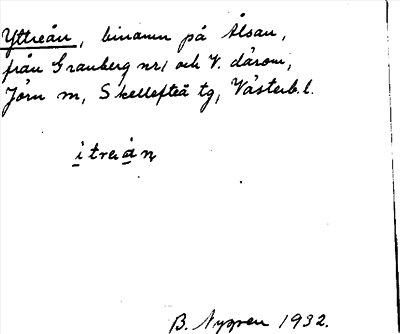 Yttreån, binamn på Ålsan,
från Granberg nr 1 och V. därom,
Jörn sn, Skellefteå tg, Västerb. l.
itreån
B. Nygren 1932.